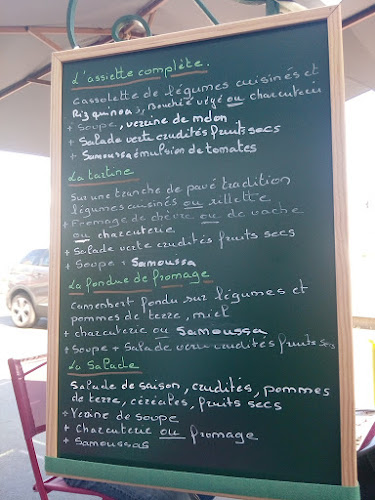 L'assiette complète.
Cassolette de légumes cuisinés et
Riz quinoa, Bouchée végé ou charcuterie
+ Soupe, verrine de melon
+ Salade verte crudités fruits secs
+ Samoussa émulsion de tomates
La tartine
Sur une tranche de pavé tradition
légumes cuisinés ou rillette
+ Fromage de chèvre ou de vache
ou charcuterie
+ Salade verte crudités fruits secs
+ Soupe + Samoussa
La fondue de fromage
Camembert fondu sur légumes et
pommes de terre, miel
+ charcuterie ou Samoussa
+ Soupe + Salade verte crudités fruits secs
La Salade
Salade de saison, crudités, pommes
de terre, céréales, fruits secs
+ Verine de soupe
+ Charcuterie ou fromage
+ Samoussas